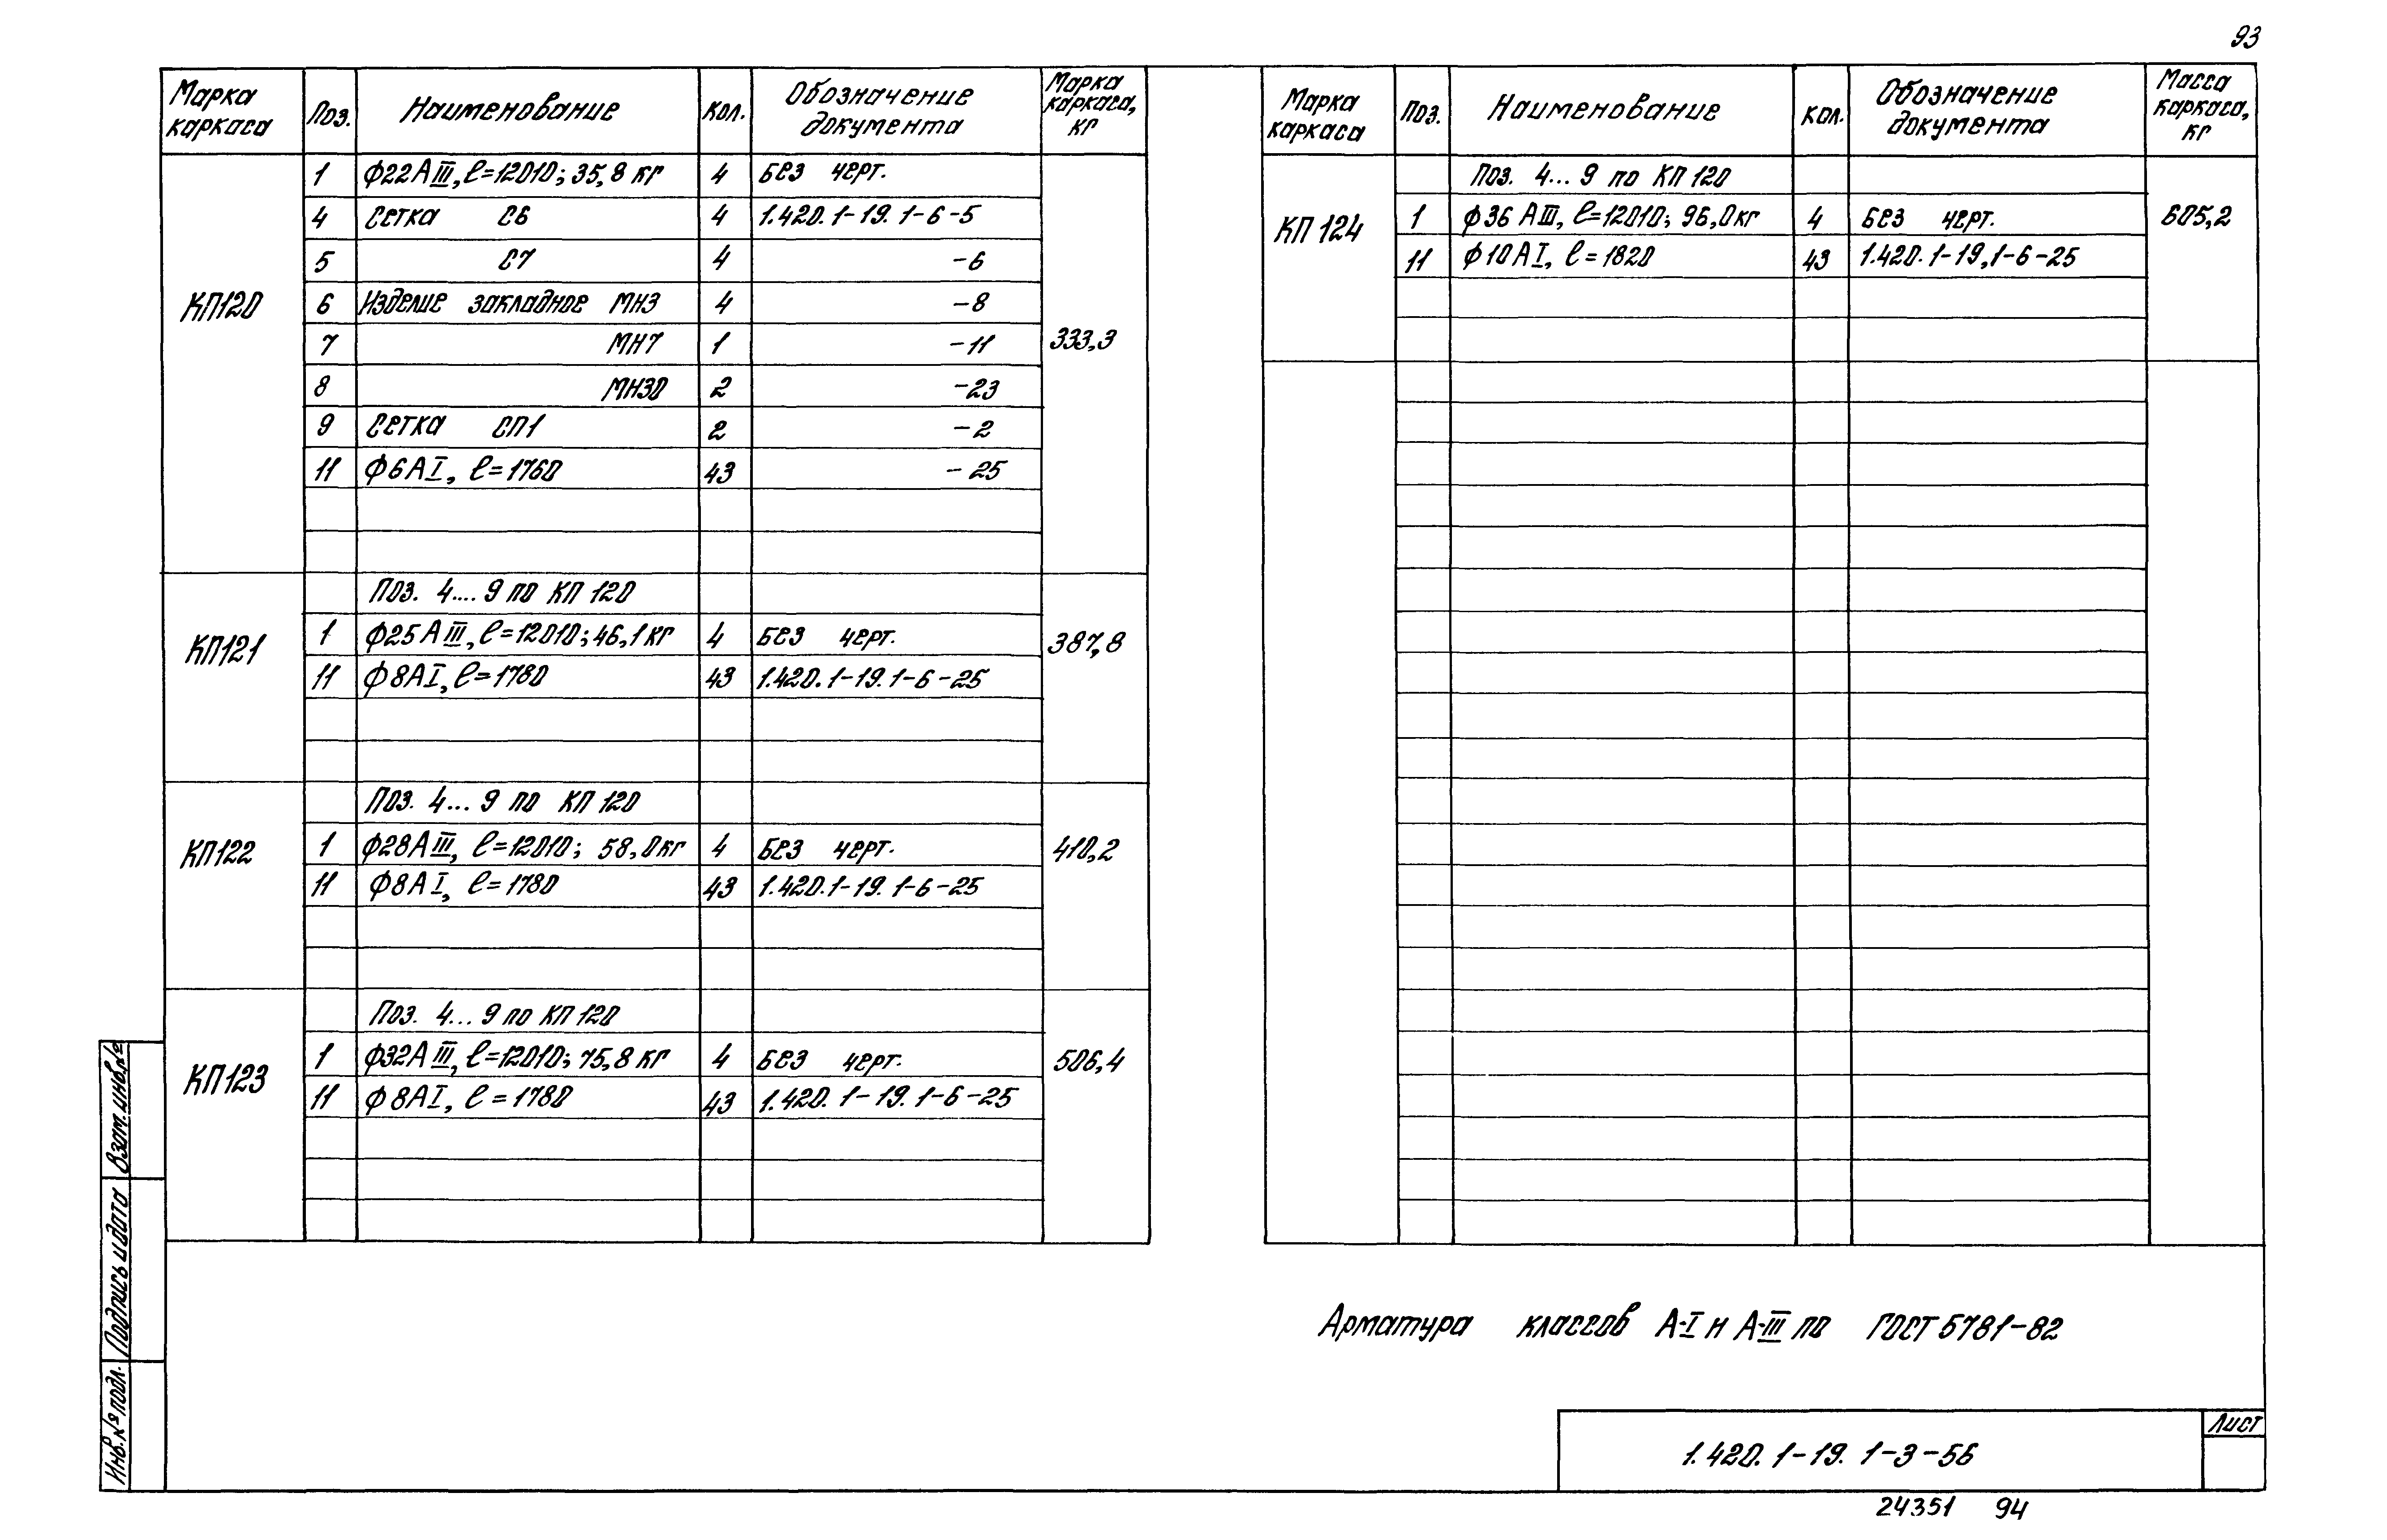 93
Марка каркаса Поз. Наименование Кол. Обозначение документа Марка каркаса, кг
КП120 333,3
1 Ф22АIII, ℓ=12010; 35,8 кг 4 Без черт.
4 Сетка С6 4 1.420.1-19.1-6-5
5 С7 4 -6
6 Изделие закладное МН3 4 -8
7 МН7 1 -11
8 МН30 2 -23
9 Сетка СП1 2 -2
11 Ф6АI, ℓ=1760 43 -25
КП121 387,8
Поз. 4.... 9 по КП 120
1 Ф25АIII, ℓ=12010; 46,1 кг 4 Без черт.
11 Ф8АI, ℓ=1780 43 1.420.1-19.1-6-25
КП122 410,2
Поз. 4... 9 по КП 120
1 Ф28АIII, ℓ=12010; 58,0 кг 4 Без черт.
11 Ф8АI, ℓ=1780 43 1.420.1-19.1-6-25
КП123 506,4
Поз. 4... 9 по КП 120
1 Ф32АIII, ℓ=12010; 75,8 кг 4 Без черт.
11 Ф8АI, ℓ=1780 43 1.420.1-19.1-6-25
Марка каркаса Поз. Наименование Кол. Обозначение документа Масса каркаса, кг
КП 124 605,2
Поз. 4... 9 по КП 120
1 Ф36 АIII, ℓ=12010; 96,0 кг 4 Без черт.
11 Ф10АI, ℓ=1820 43 1.420.1-19,1-6-25
Арматура классов А-I и А-III по ГОСТ 5781-82
1.420.1-19.1-3-56
Лист
24351 94
Взам. инв. №
Подпись и дата
Инв. № подл.